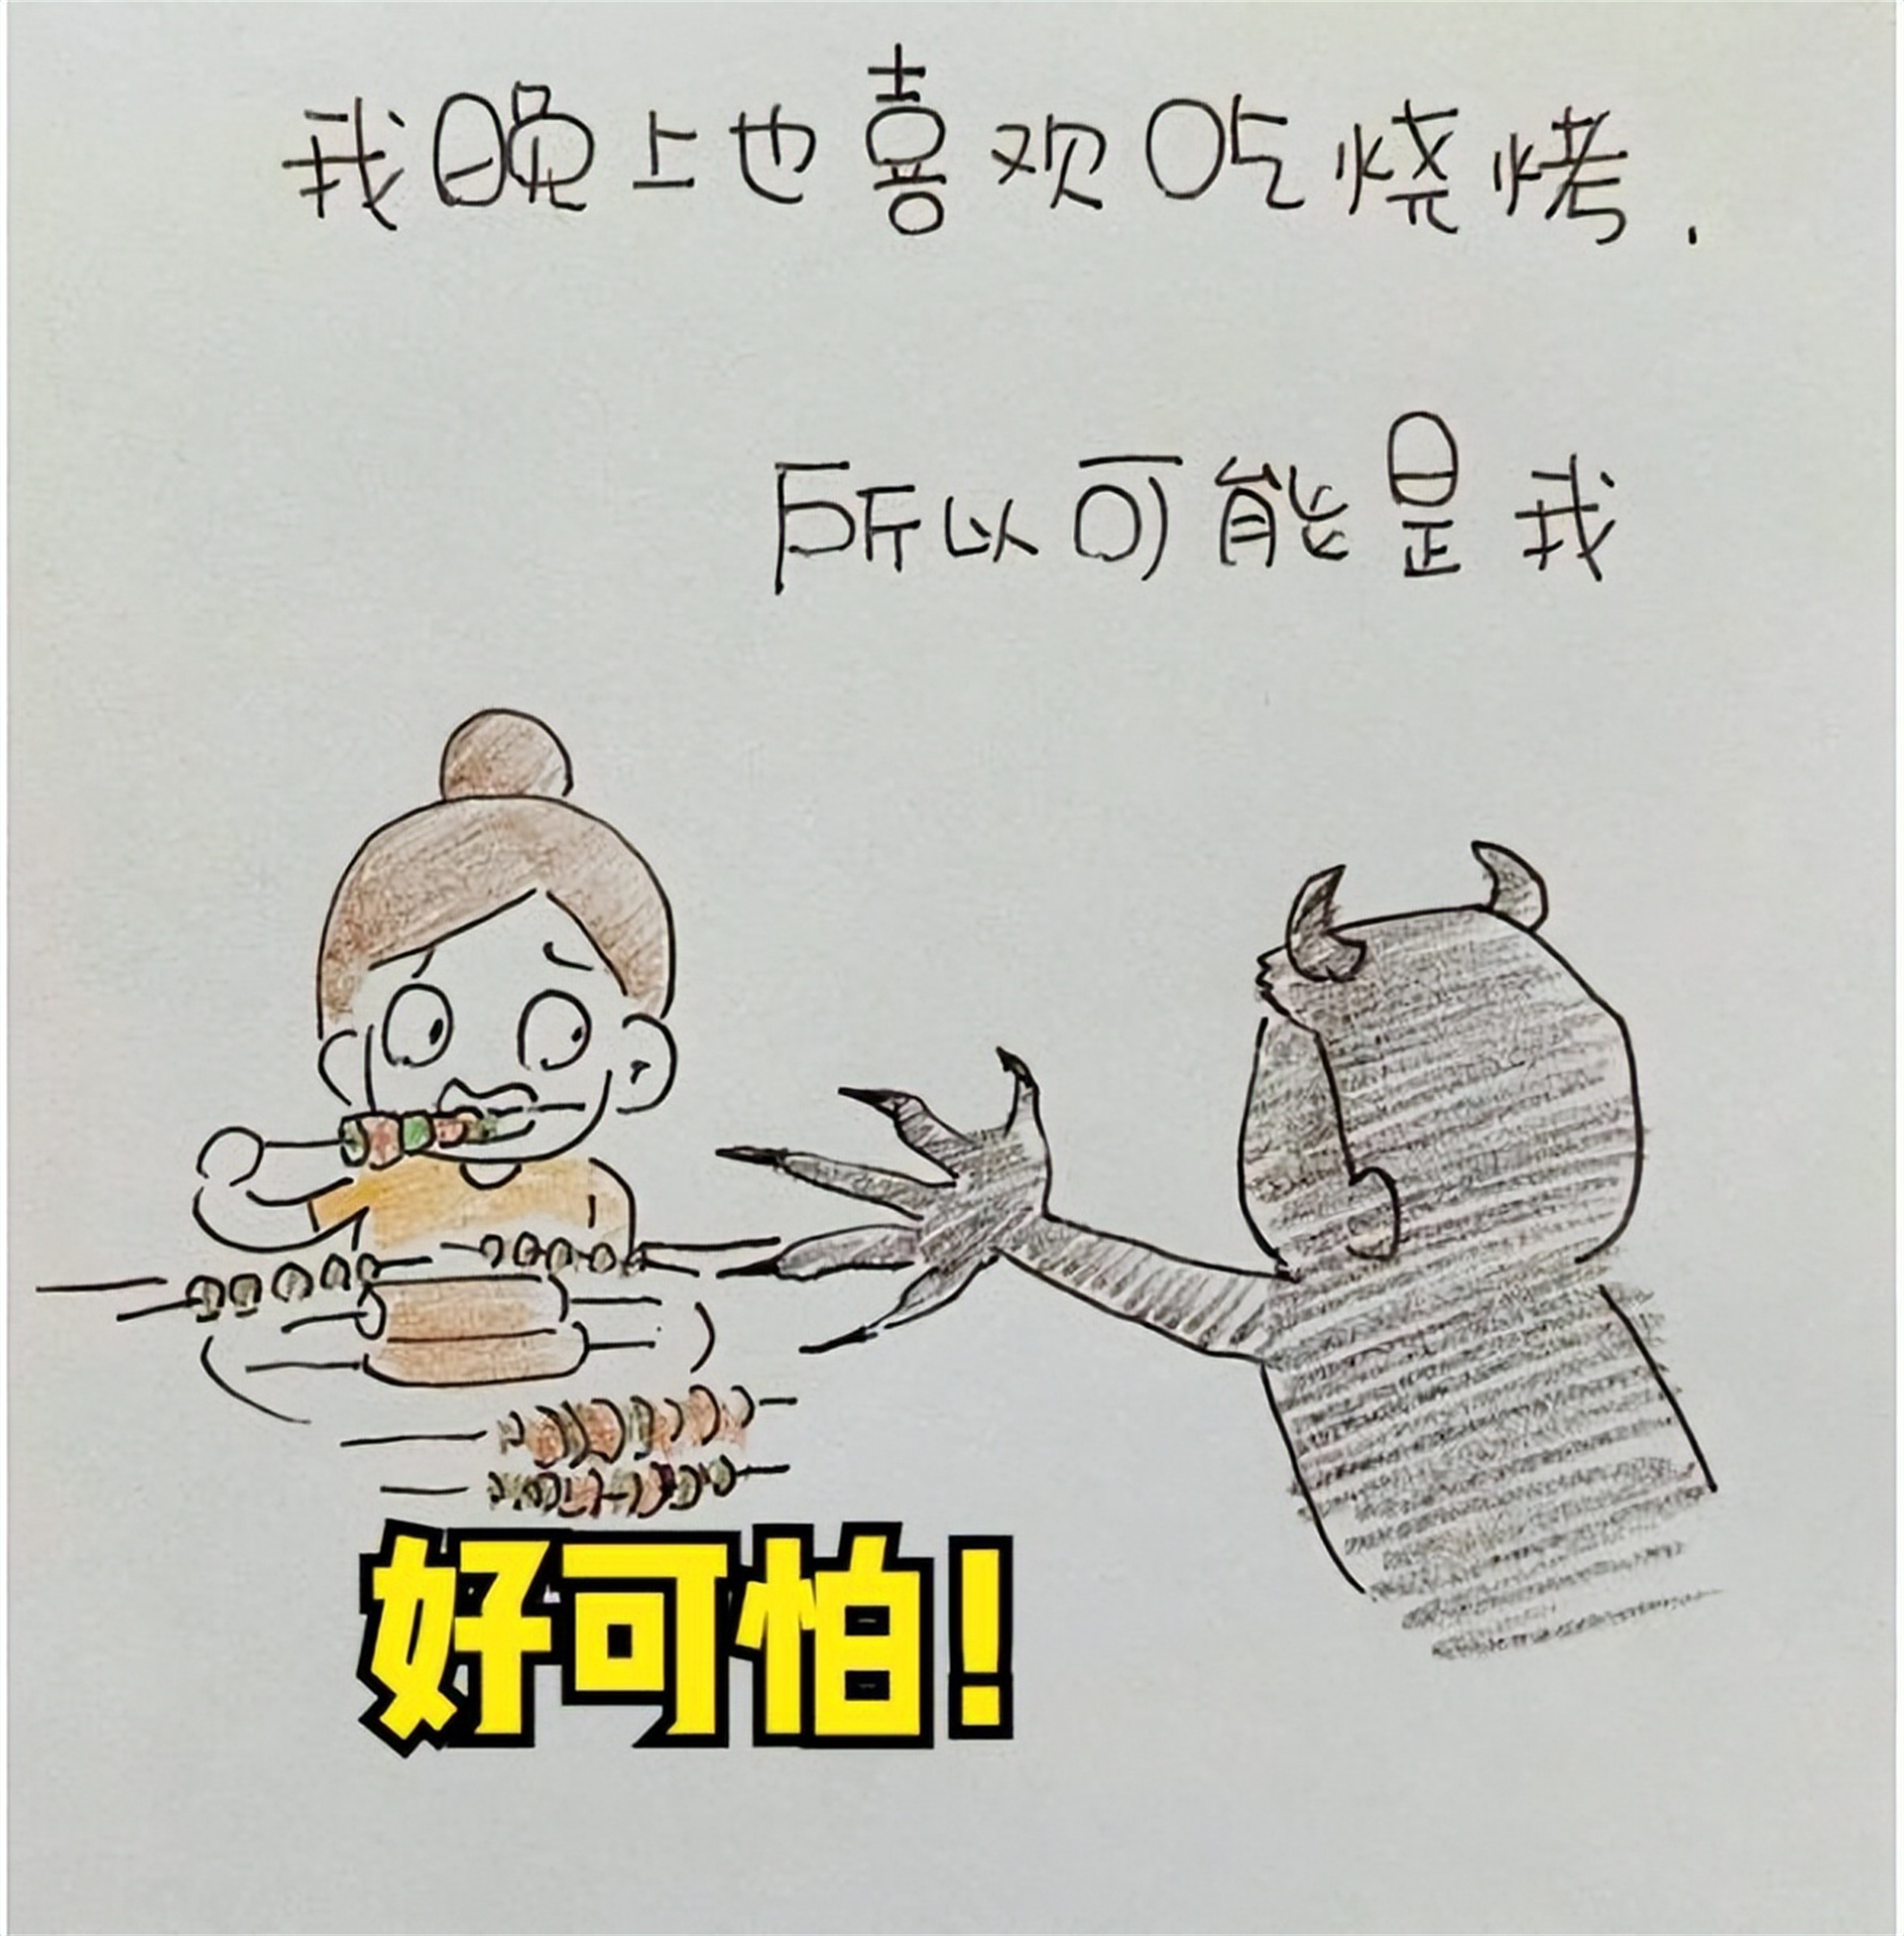 我晚上也喜欢吃烧烤.
所以可能是我
好可怕!